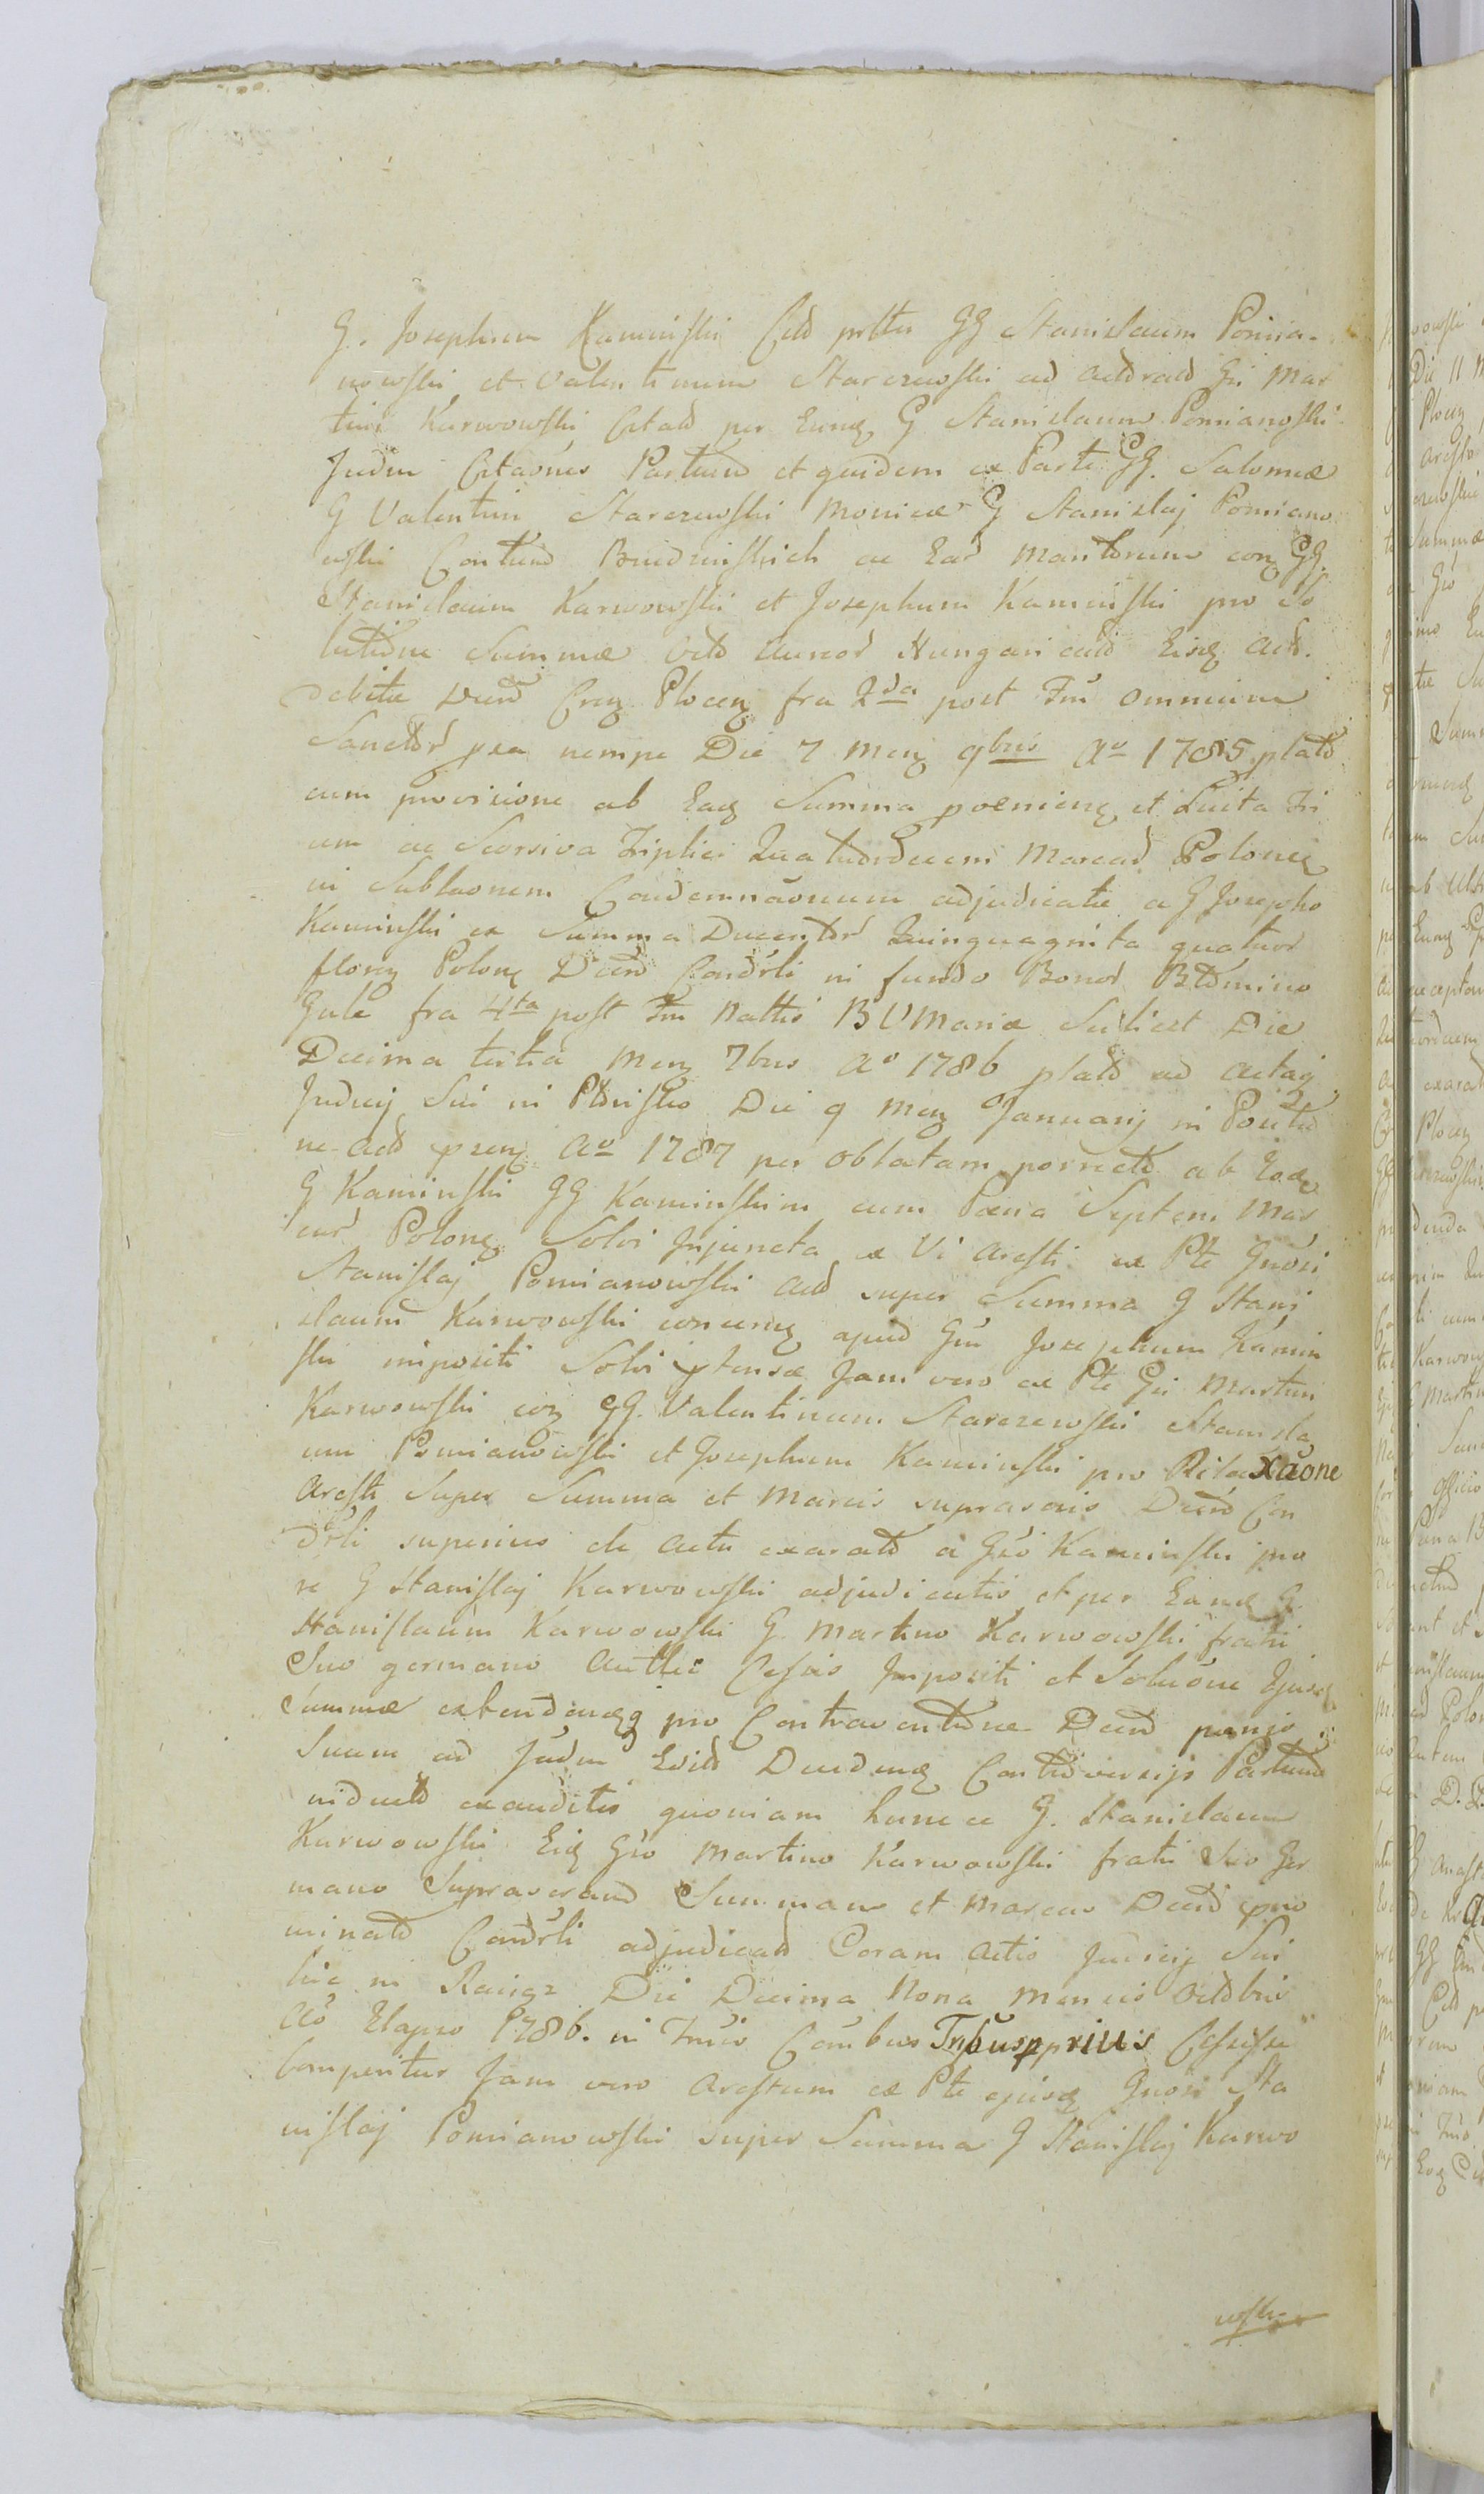 G. Josephum Kaminski Citd GG Stanislaum Pomia-
nowski et Valentinum Starczewski ad Gñi Mar
tini Karwowski Citatd per Eunq G Stanislaum Pomianoski
Judm Citaõnes Partium et quidem ex Parte GG. Salomeæ
G Valentini Starczewski Monicæ G Stanislaj Pomiano
wski Contum Budzinskich ac Ear Maritorum conq GG.
Stanislaum Karwowski et Josephum Kaminski pro So
lutione Summæ Octo Aureor Hungaricalid Eisq Act.
debitæ Crq Plocenq fra 2da post Fm Omnium
Sanctor pxa nempe Die 7 Menq 9bris Ao 1785. platd
cum provisione ab Eaq Summa pvenienq et Luita Tri
um ac Seorsiva Triplici Quatuordecem Marcar Poloneq
in Sublaonem Condemnãonum adjudicatæ a G Josepho
Kaminski ex Summa Ducentor Quinquaginta quatuor
florenq Polonq Decrd Condrli in fundo Bonor
Gule fra 4ta post Fm Nattis BVMariæ Scilicet Die
Decima tertia Menq 7bris Ao 1786 platd ad Actaq
Judicij Sui in Die 9 Menq Januarij in
ne Actd pzenq Ao 1787 per Oblatam porrectd ab Eodq
G Kaminski GG Kaminskim cum Pæna Septem Mar
car Polonq Solvi Injuncta ex Vi Aresti ex Pte Gnõsi
Stanislaj Pomianowski Actd super Summa G Stani
slaum Karwowski concernq apud Gñm Josephum Kamin
ski impositi Solvi ptensæ Jam vero ex Pte Gñi Martini
Karwowski conq GG. Valentinum Starczewski Stanisla
um Pomianowski et Josephum Kaminski pro Rilaxãone
Aresti Super Summa et Marcis suprascris Decrd Con
drli superius de Actu exaratd a Gño Kaminski pro
re G Stanislaj Karwowski adjudicatis et per Eunq G.
Stanislaum Karwowski G. Martino Karwowski fratri
Suo germano Cessis Impositi et Soluõne Ejusd
Summæ extendenq pro Contraventione Decrd
Suam ad Judm Editd Ducdmq Controversijs Partium
exauditis quoniam hunc a G. Stanislaum
Karwowski Eiq Gño Martino Karwowski fratri Suo Ger
mano Suprascrand Summam et Marcas Decrd pno
minatd Condrli adjudicatd Coram Actis Judicij Sui
hic in Raciąż Die Decima Nona Mensis Octobris
Ao Elapso 1786. in Tmis Combus Tribus pprius Cessisse
Comperitur Jam vero Arestum ex Pte ejusq Gnosi Sta
nislaj Pomianowski super Summa G Stanislaj Karwo
wski